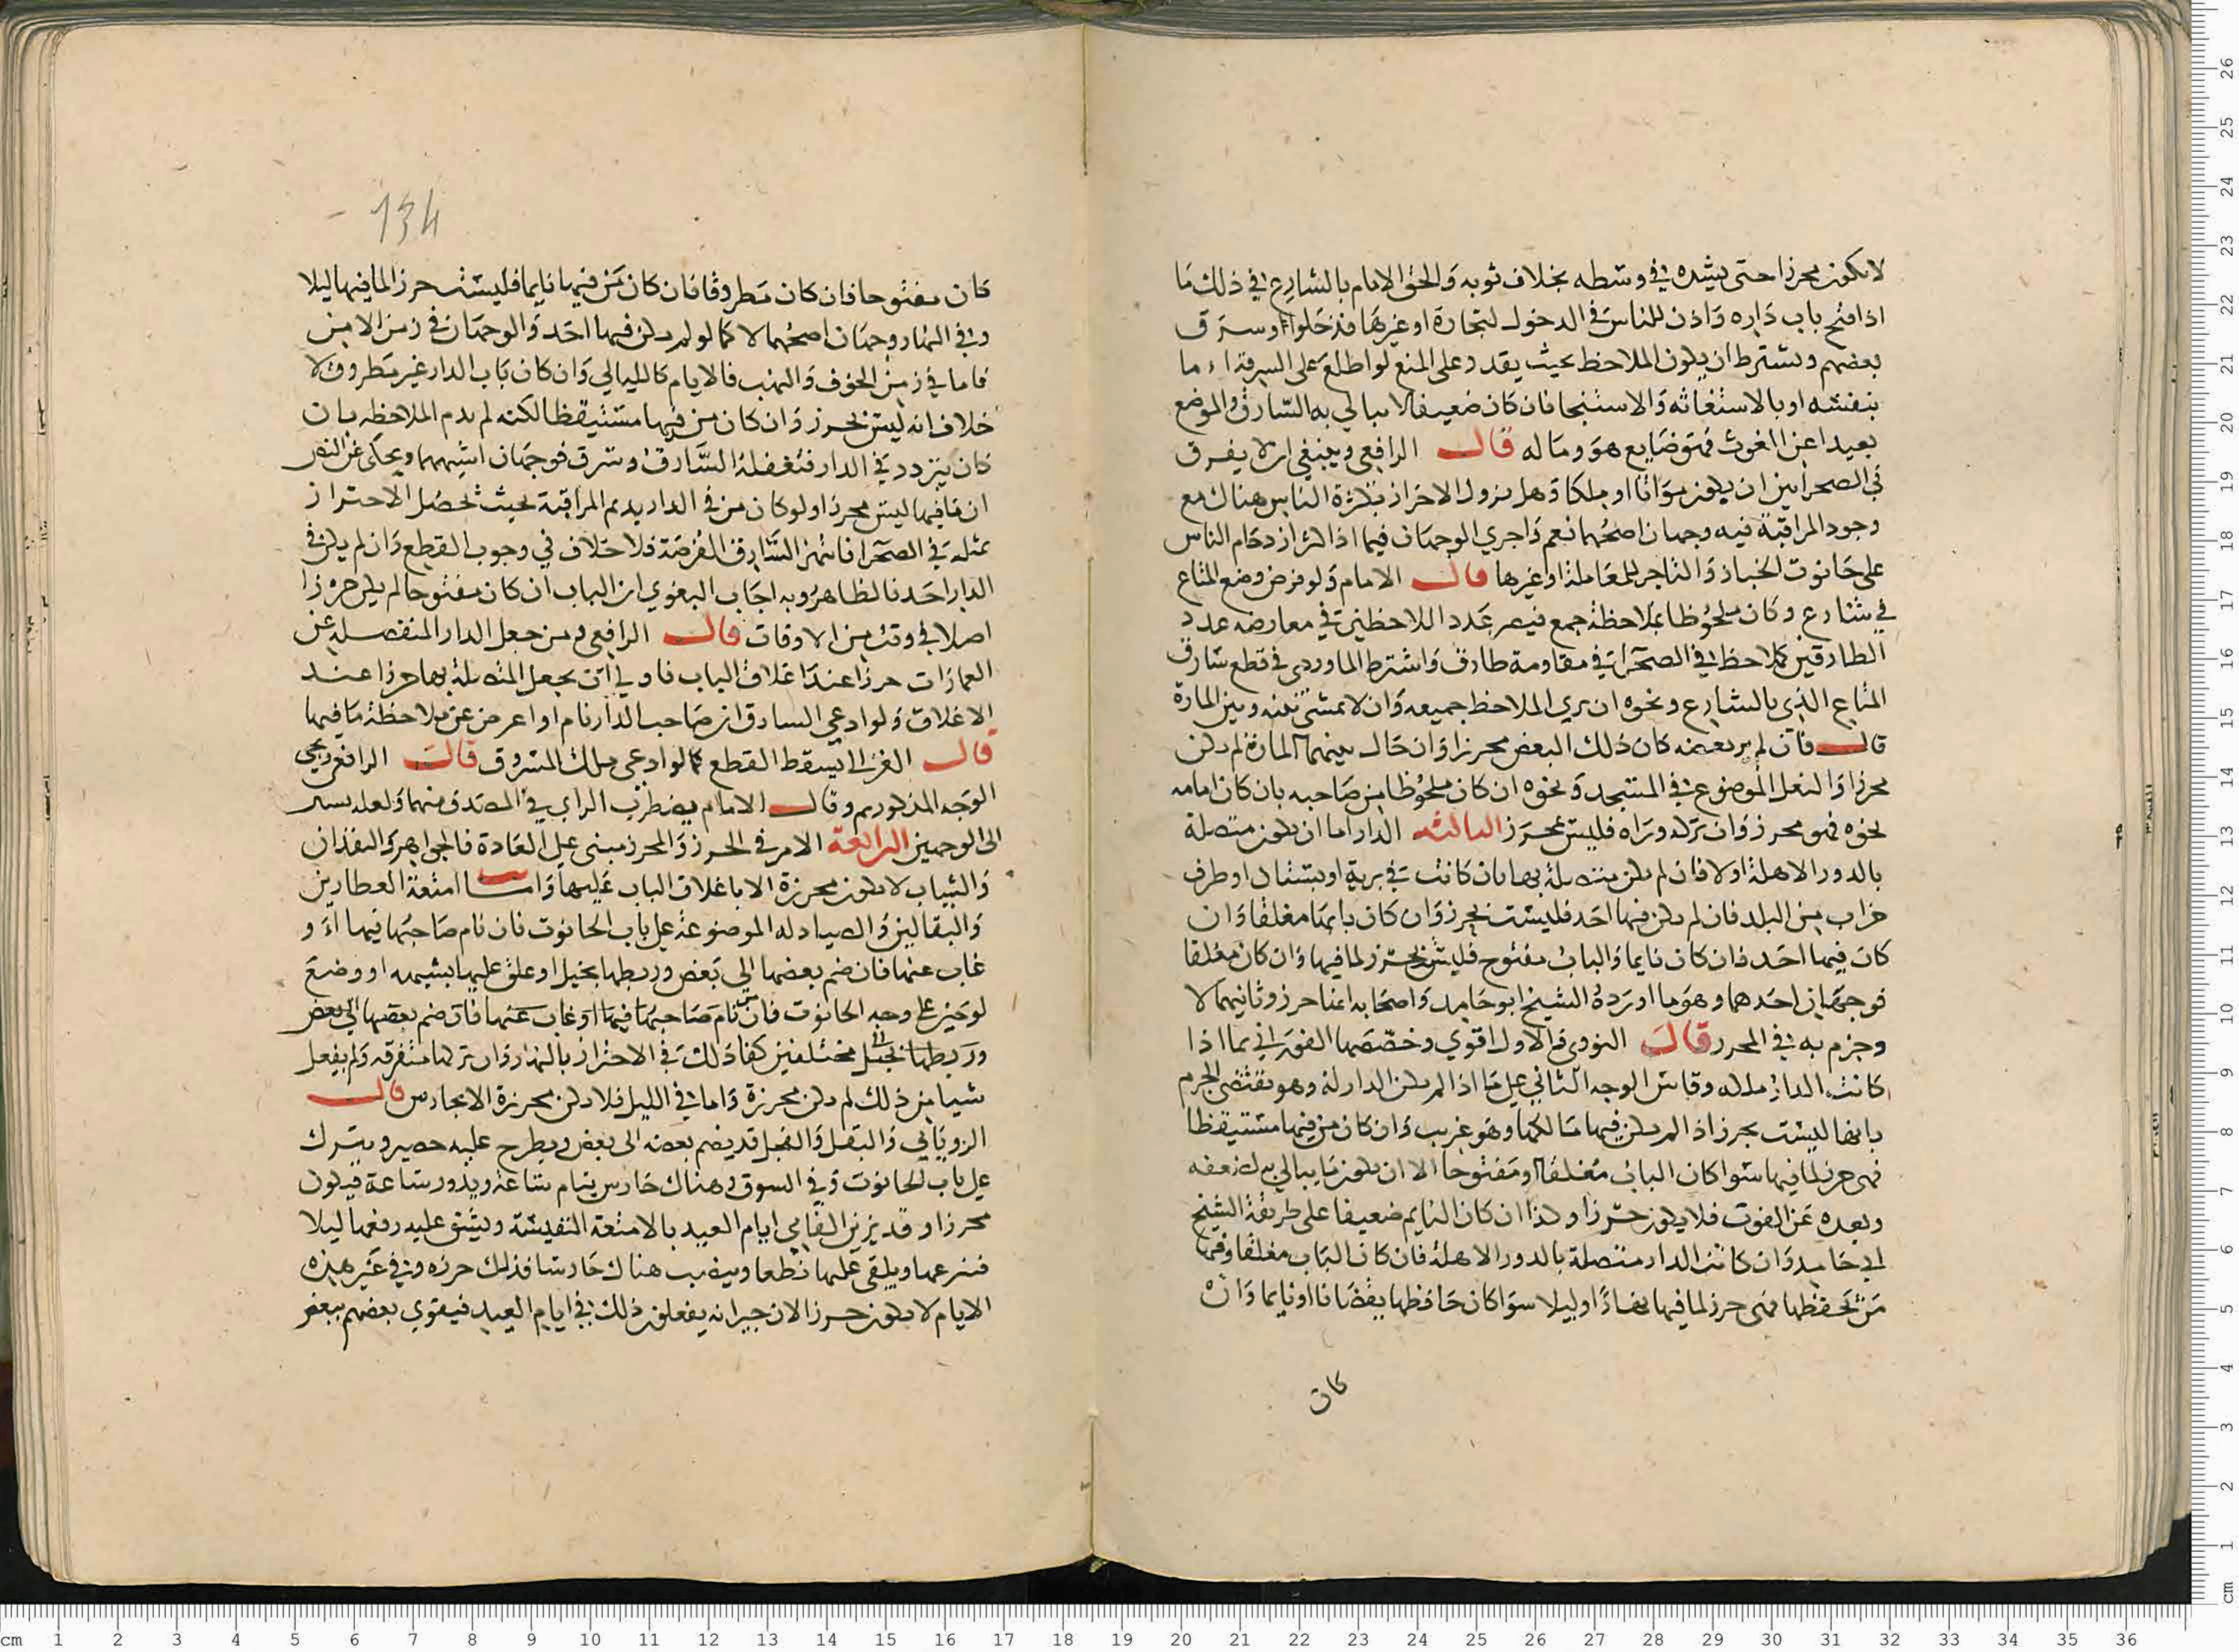 لا يكون محرزا حتى يشده في وسطه بخلاف ثوبه والحق الامام بالشارع في ذلك ما
اذا فتح باب داره واذن للناس في الدخول لتجارة او غيرها فدخلوا وسرق
بعضهم ويشترط ان يكون الملاحظ بحيث يقدر على المنع لو اطلع على السرقة اما
بنفسه او بالاستغاثة والاستنجا فان كان ضعيفا لا يبالي به السارق والموضع
بعيدا عن الغوث فهو ضايع هو وماله قال الرافعي وينبغي ان لا يفرق
في الصحرا بين ان يكون مواتا او ملكا وهل يزول الاحراز بكثرة الناس هناك مع
وجود المراقبة فيه وجهان اصحهما نعم واجري الوجهان فيما اذا كثر ازدحام الناس
على حانوت الخباز والتاجر للمعاملة او غيرها قال الامام ولو فرض وضع المتاع
في شارع وكان ملحوظا بملاحظة جمع فيصر عدد اللاحظين في معارضه عدد
الطارقين كملاحظ في الصحرا في مقاومة طارق واشترط الماوردي في قطع سارق
المتاع الذي بالشارع ونحوه ان يري الملاحظ جميعه وان لا تمشي بينه وبين المارة
قال فان لم ير بعضه كان ذلك البعض محرزا وان حال بينهما المارة لم يكن
محرزا والنعل الموضوع في المسجد ونحوه ان كان ملحوظا من صاحبه بان كان امامه
نحوه فهو محرز وان تركه وراه فليس بمحرز الثالثه الدار اما ان يكون متصلة
بالدور الاهلة او لا فان لم يكن متصلة بها بان كانت في برية او بستان او طرف
خراب من البلد فان لم يكن فيها احد فليست بحرز وان كان بابها مغلقا وان
كان فيها احد فان كان نايما والباب مفتوح فليس بحرز لما فيها وان كان مغلقا
فوجهان احدهما وهو ما اورده الشيخ ابو حامد واصحابه انها حرز وثانيهما لا
وجزم به في المحرر قال النووي والاول اقوي وخصصهما الفوراني بما اذا
كانت الدار ملكه وقاس الوجه الثاني على ما اذا لم يكن الدار له وهو يقتضي الجزم
بانها ليست بحرز اذا لم يكن فيها مالكها وهو غريب وان كان من فيها مستيقظا
فهي حرز لما فيها سوا كان الباب مغلقا او مفتوحا الا ان يكون ما يبالي به لضعفه
وبعده عن الغوث فلا يكون حرزا وكذا ان كان النايم ضعيفا على طريقة الشيخ
ابي حامد وان كانت الدار متصلة بالدور الاهلة فان كان الباب مغلقا وفيها
من يحفظها فهي حرز لما فيها نهارا وليلا سوا كان حافظها يقضانا او نايما وان
كان
134
كان مفتوحا فان كان مطروقا فان كان من فيها نايما فليست حرز الما فيها ليلا
وفي النهار وجهان اصحهما لا كما لو لم يكن فيها احد والوجهان في زمن الامن
فاما في زمن الخوف والنهب فالايام كالليالي وان كان باب الدار غير مطروق لا
خلاف انه ليس بحرز وان كان من فيها مستيقظا لكنه لم يدم الملاحظه بان
كان يتردد في الدار فتغفله السارق وسرق فوجهان اشبههما ويحكى عن النص
ان ما فيها ليس محرزا ولو كان من في الدار يديم المراقبة بحيث تحصل الاحتراز
بمثله في الصحرا فانتهز السارق الفرصة فلا خلاف في وجوب القطع وان لم يكن في
الدار احد فالظاهر وبه اجاب البغوي ان الباب ان كان مفتوحا لم يكن حرزا
اصلا في وقت من الاوقات قال الرافعي ومن جعل الدار المنفصله عن
العمارات حرزا عند اغلاق الباب فاولى ان يجعل المتصلة بها حرزا عند
الاغلاق ولو ادعي السارق ان صاحب الدار نام او اعرض عن ملاحظة ما فيها
قال الغزالي يسقط القطع كما لو ادعي ملك المسروق قال الرافعي ويجي
الوجه المذكور ثم وقال الامام يضطرب الراي في المصدق منهما ولعله يسر
الى الوجهين الرابعة الامر في الحرز والمحرز مبني على العادة فالجواهر والنقدان
والثياب لا يكون محرزة الا باغلاق الباب عليها واما امتعة العطارين
والبقالين والصيادله الموضوعة على باب الحانوت فان نام صاحبها فيها او
غاب عنها فان ضم بعضها الى بعض وربطها بحبل او علق عليها بشبكه او وضع
لوحين على وجه الحانوت فان نام صاحبها فيها او غاب عنها فان ضم بعضها الى بعض
وربطها بحبل مختلفين كفا ذلك في الاحتراز بالنهار وان تركها متفرقه ولم يفعل
شيا من ذلك لم يكن محرزة واما في الليل فلا يكن محرزة الا بحارس قال
الروياني والبقل والفجل قد يضم بعضه الى بعض ويطرح عليه حصير ويترك
على باب الحانوت وفي السوق وهناك حارس ينام ساعة ويدور ساعة فيكون
محرزا وقد يزين الفامي ايام العيد بالامتعة النفيسة ويشق عليه رفعها ليلا
فنرعها ويلقي عليها نطعا وينصب هناك حارسا فذلك حرزه وفي غير هذه
الايام لا يكون حرزا لان جيرانه يفعلون ذلك في ايام العيد فيقوي بعضهم ببعض